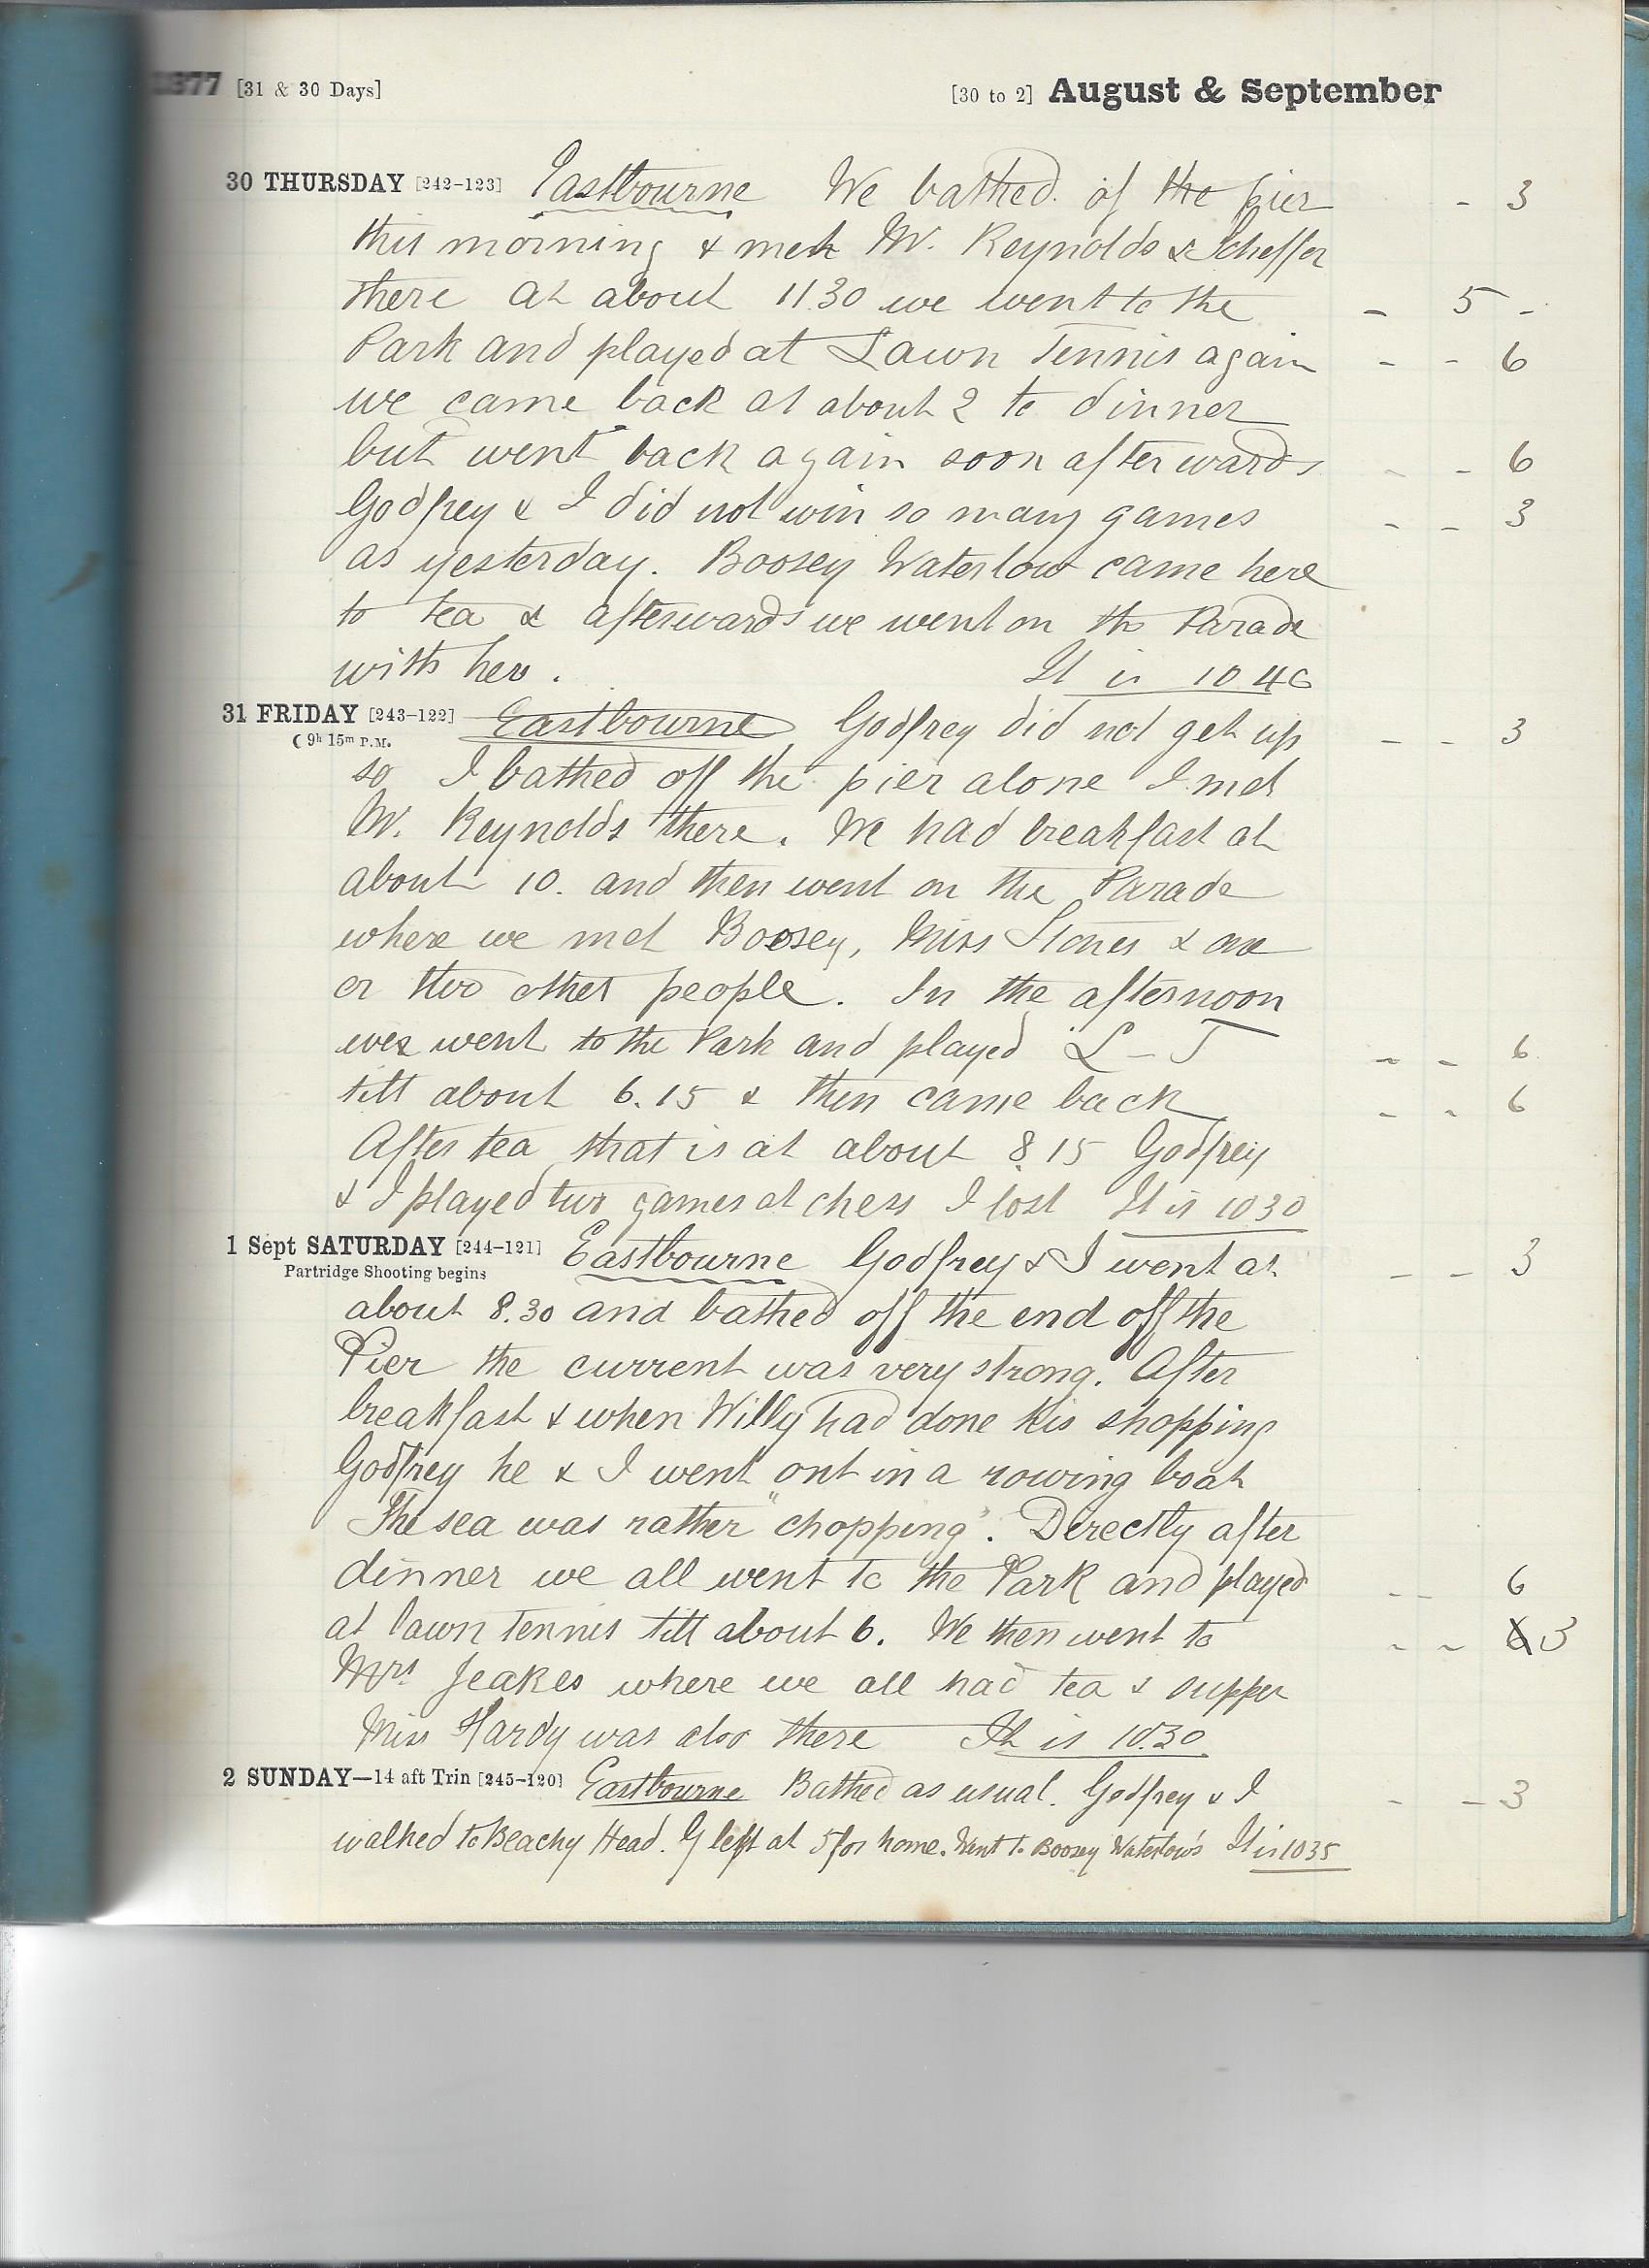 1877 [31 & 30 Days] [30 to 2] August & September
30 THURSDAY [242-123] Eastbourne We bathed of the pier - 3
this morning & met W. Reynolds & Scheffer
there at about 11 30 we went to the - 5 -
Park and played at Lawn Tennis again - - 6
we came back at about 2 to dinner
but went back again soon afterwards - - 6
Godfrey & I did not win so many games - - 3
as yesterday. Boosey Waterlow came here
to tea & afterwards we went on the Parade
with her. It is 10 46
31 FRIDAY [243-122] Eastbourne Godfrey did not get up - - 3
☾ 9h 15m P.M.
so I bathed off the pier alone I met
W. Reynolds there. We had breakfast at
about 10. and then went on the Parade
where we met Boosey, Miss Stones & one
or two other people. In the afternoon
we went to the Park and played L - T - - 6
till about 6.15 & then came back - - 6
After tea that is at about 8.15 Godfrey
& I played two games at chess I lost It is 10 30
1 Sept SATURDAY [244-121] Eastbourne Godfrey & I went at - - 3
Partridge Shooting begins
about 8.30 and bathed off the end off the
Pier the current was very strong. After
breakfast & when Willy had done his shopping
Godfrey he & I went out in a rowing boat
The sea was rather "chopping". Directly after
dinner we all went to the Park and played - - 6
at lawn tennis till about 6. We then went to - - 6 3
Mrs. Jeakes where we all had tea & supper
Miss Hardy was also there It is 10.30
2 SUNDAY—14 aft Trin [245-120] Eastbourne Bathed as usual. Godfrey & I - - 3
walked to Beachy Head. G left at 5 for home. Went to Boosey Waterlow's It is 10 35